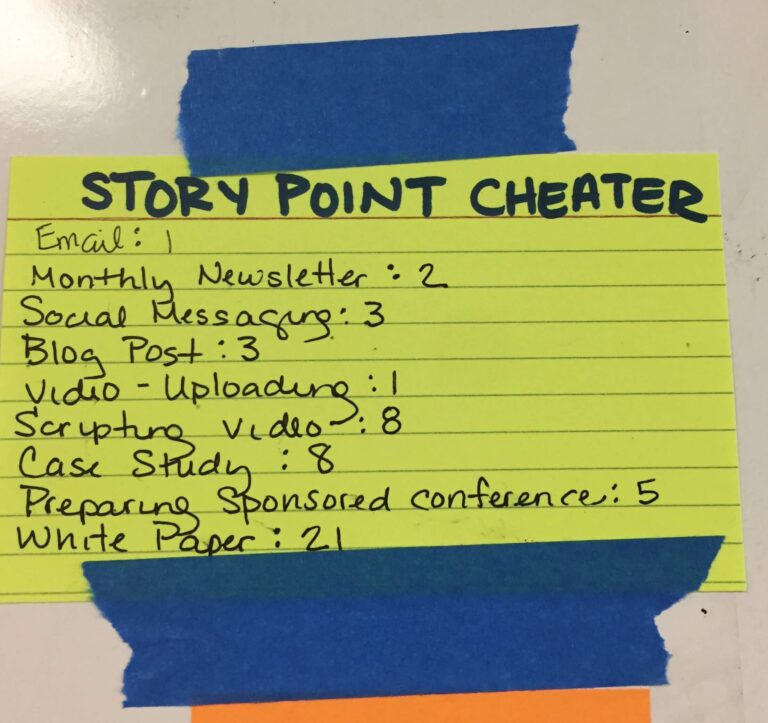 STORY POINT CHEATER
Email: 1
Monthly Newsletter: 2
Social Messaging: 3
Blog Post: 3
Video - Uploading: 1
Scripting video -: 8
Case Study: 8
Preparing Sponsored conference: 5
White Paper: 21